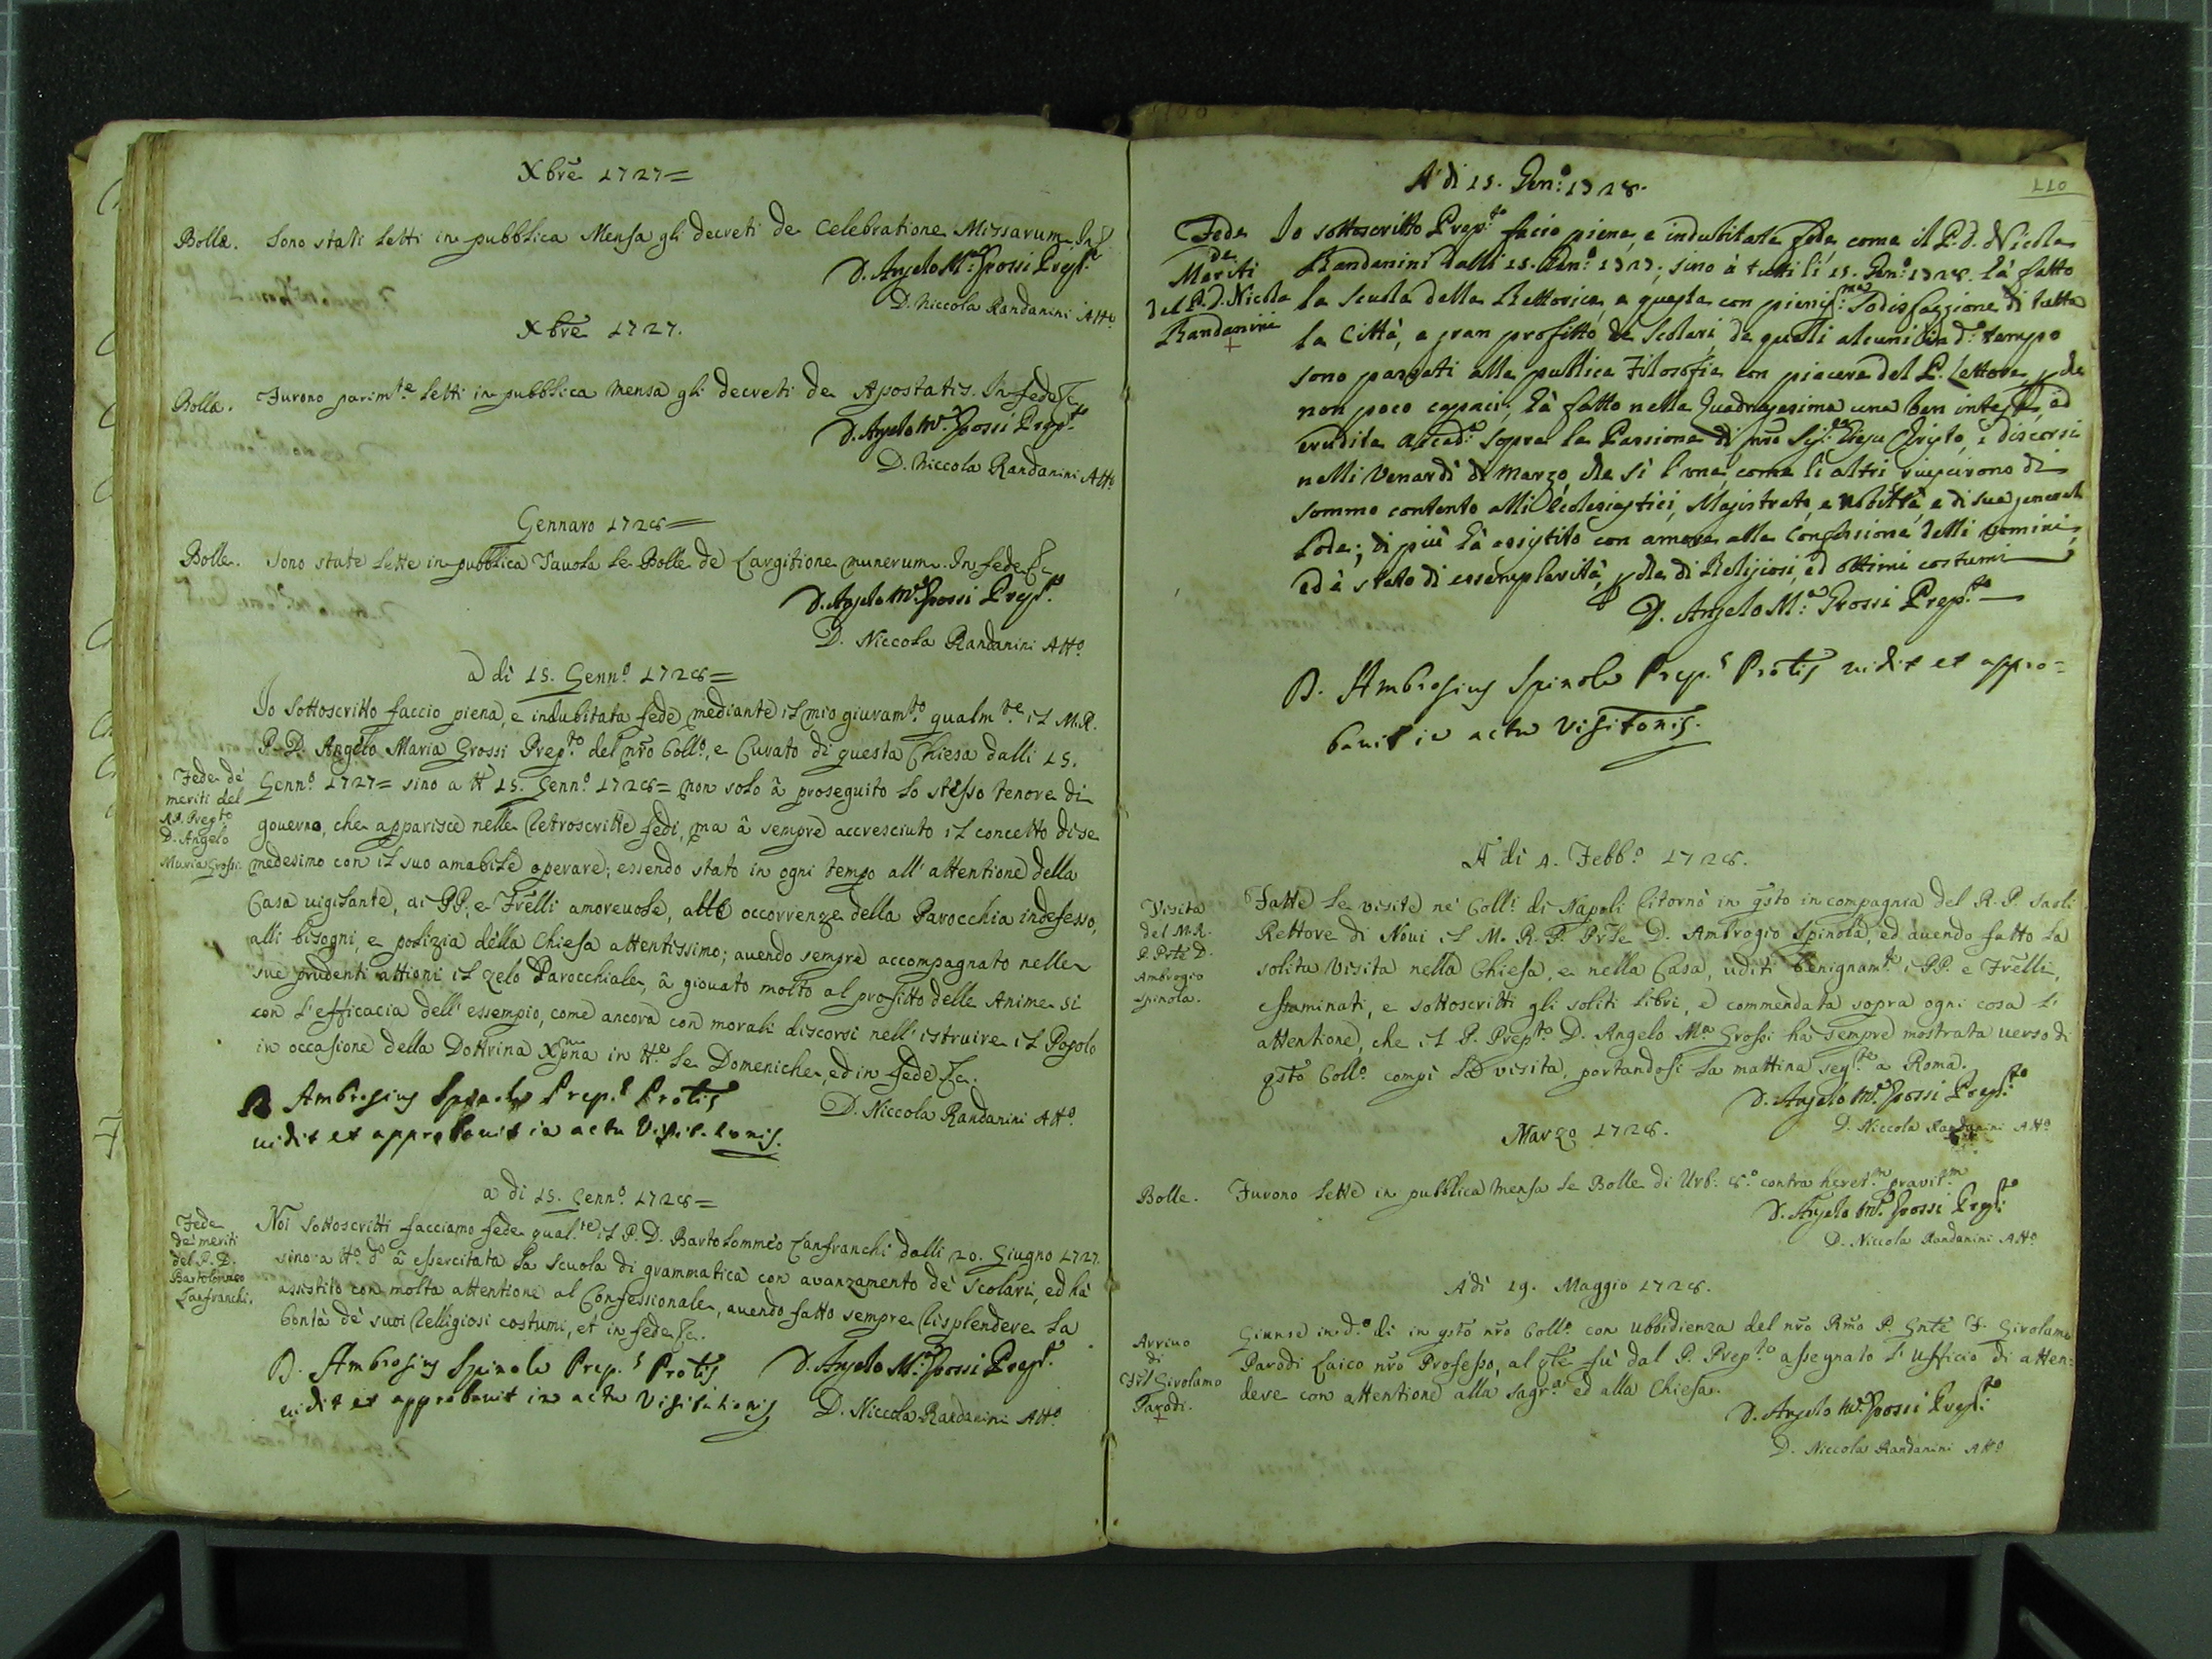 Xbre 1727=
Bolle. Sono stati letti in pubblica Mensa gli decreti de Celebratione Missarum. In f.
D. Angelo Ma. Grossi Prepto.
D. Niccola Randanini Atto.
Xbre 1727.
Bolle. Furono parimte. letti in pubblica mensa gli decreti de Apostatis. In fede &c
D. Angelo Ma. Grossi Prepto.
D. Niccola Randanini Atto.
Gennaro 1728=
Bolle. Sono state lette in pubblica Tauola le Bolle de Largitione munerum. In fede &c
D. Angelo Ma. Grossi Prepto.
D. Niccola Randanini Atto.
a di 15. Genno. 1728=
Io sottoscritto faccio piena, e indubitata fede mediante il mio giuramto. qualmte. il M.R.
P. D. Angelo Maria Grossi Prepto. del nro Collo., e Curato di questa Chiesa dalli 15.
Fede de meriti del M.R. Prepto D. Angelo Maria Grossi.
Genno. 1727= sino a tt 15. Genno. 1728= non solo â proseguito lo stesso tenore di
gouerno, che apparisce nelle retroscritte fedi, ma â sempre accresciuto il concetto di se
medesimo con il suo amabile operare; essendo stato in ogni tempo all'attentione della
Casa uigilante, ai PP. e Frelli amoreuole, alle occorrenze della Parocchia indefesso,
alli bisogni, e polizia della Chiesa attentissimo; auendo sempre accompagnato nelle
sue prudenti attioni il zelo Parocchiale, â giouato molto al profitto delle Anime si
con l'efficacia dell'essempio, come ancora con morali discorsi nell'istruire il Popolo
in occasione della Dottrina Xpna in tte le Domeniche, ed in fede &c.
D. Ambrosius Spinola Prep.s Prolis
D. Niccola Randanini Atto.
uidit et approbauit in actu Visitationis.
a di 15. Genno. 1728=
Fede de' meriti del P. D. Bartolomeo Lanfranchi.
Noi sottoscritti facciamo fede qualte. il P. D. Bartolommeo Lanfranchi dalli 20. Giugno 1727.
sino a tto. do. â essercitata la scuola di grammatica con avanzamento de' scolari, ed hà
assistito con molta attentione al Confessionale, auendo fatto sempre risplendere la
bontà de' suoi Relligiosi costumi, et in fede &c.
D. Ambrosius Spinola Prep.s Prolis
D. Angelo Ma. Grossi Prepto.
uidit et approbauit in actu Visitationis
D. Niccola Randanini Atto.
110
A di 15. Geno: 1728.
Fede de Meriti del P. D. Nicola Randanini
Io sottoscritto Prepto. facio piena, e indubitata fede, come il P. D. Nicola
Randanini dalli 15. Geno. 1727; sino à tutti li 15. Geno: 1728. hà fatto
la scuola della Rettorica, e questa con pienissma: sodisfazzione di tutta
la Città, e gran profitto de Scolari, de quali alcuni in do. tempo
sono passati alla publica Filosofia con piacere del P. Lettore, p che
non poco capaci; hà fatto nella Quadragesima una ben intesa, ed
erudita accada. sopra la Passione di nro Sigre. Giesu Christo, e discorsi
nelli Venardì di Marzo, che sì l'una, come li altri riuscirono di
sommo contento alli Ecclesiastici, Magistrato, e Nobiltà, e di sua general
lode; di più hà assistito con amore alla Confessione delli uomini,
ed è stato di essemplarità, p che di Religiosi, ed ottimi costumi
D. Angelo Ma. Grossi Prepto.
D. Ambrosius Spinola Prep.s Prolis uidit et appro=
bauit in actu Visitationis.
A di 4. Febbo. 1728.
Visita del M.R. P. Prle D. Ambrogio Spinola.
Fatte le visite ne' Colli. di Napoli ritornò in qsto in compagnia del R. P. Saoli
Rettore di Noui il M. R. P. Prle D. Ambrogio Spinola, ed auendo fatto la
solita Visita nella Chiesa, e nella Casa, uditi benignamte. i PP. e Frelli,
essaminati, e sottoscritti gli soliti libri, e commendata sopra ogni cosa l'
attentione, che il P. Prepto. D. Angelo Ma Grossi hà sempre mostrata uerso di
qsto Collo. compì la visita, portandosi la mattina segte. a Roma.
D. Angelo Ma. Grossi Prepto.
D. Niccola Randanini Atto.
Marzo 1728.
Bolle. Furono lette in pubblica Mensa le Bolle di Urb: 8.o contra heretm. pravitm.
D. Angelo Ma. Grossi Prepto.
D. Niccola Randanini Atto.
A dì 19. Maggio 1728.
Arriuo di Frel Girolamo Parodi.
Giunse in do. dì in qsto nro Collo. con ubbidienza del nro Rmo P. Gnle F. Girolamo
Parodi Laico nro Professo, al qle fù dal P. Prepto. assegnato l'ufficio di atten=
dere con attentione alla sagra. ed alla Chiesa.
D. Angelo Ma. Grossi Prepto.
D. Niccola Randanini Atto.